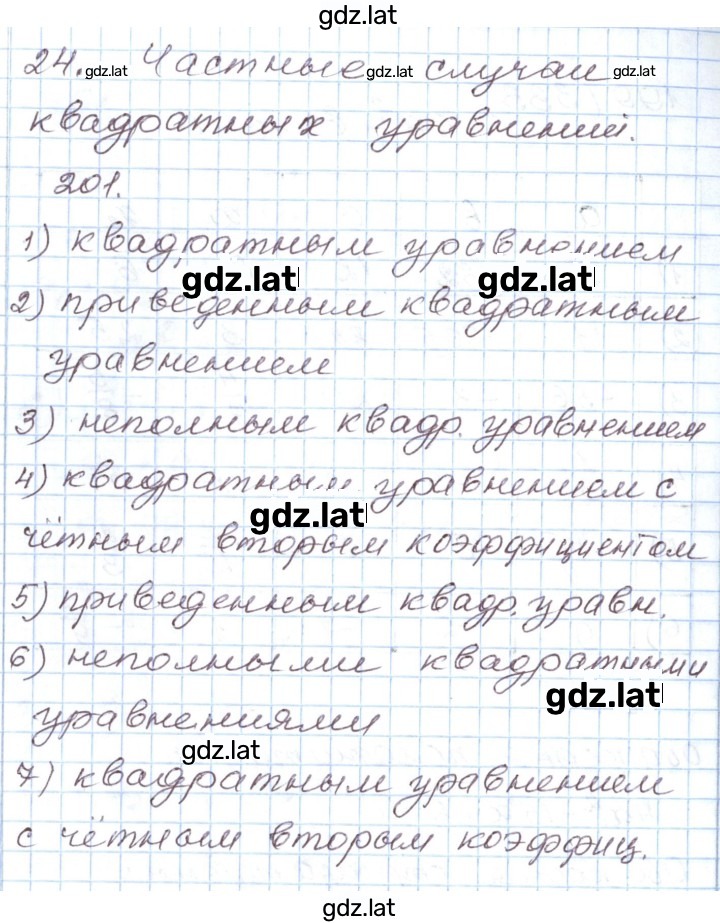 gdz.lat
24. gdz.lat Частные gdz.lat случаи gdz.lat
квадратных уравнений.
201.
1) квадратным уравнением
gdz.lat gdz.lat
2) приведенным квадратным
уравнением
3) неполным квадр. уравнением
4) квадратным уравнением с
gdz.lat
чётным вторым коэффициентом
5) приведенным квадр. уравн.
6) неполными квадратными
gdz.lat
уравнениями
gdz.lat
7) квадратным уравнением
с чётным вторым коэффиц.
gdz.lat